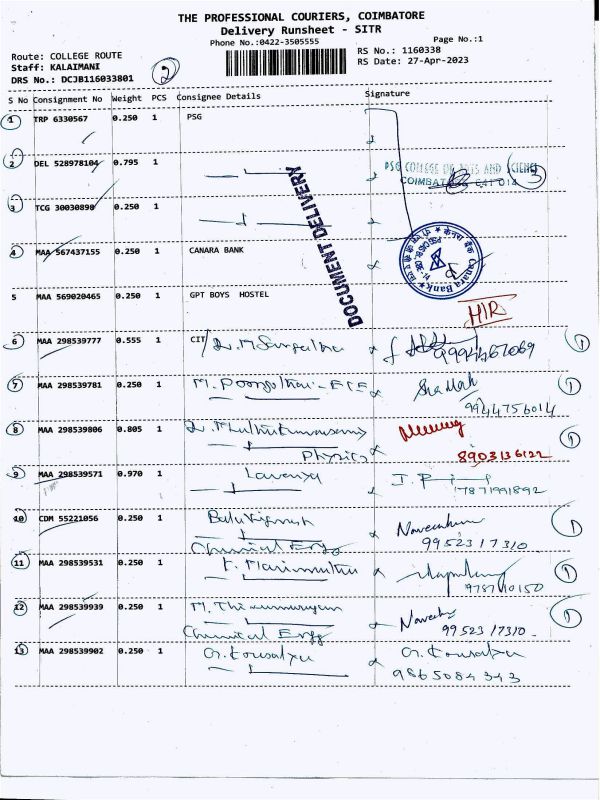 THE PROFESSIONAL COURIERS, COIMBATORE
Delivery Runsheet - SITR
Phone No.:0422-3505555 Page No.:1
Route: COLLEGE ROUTE RS No.: 1160338
Staff: KALAIMANI RS Date: 27-Apr-2023
DRS No.: DCJB116033801 2
S No Consignment No Weight PCS Consignee Details Signature
1 TRP 6330567 0.250 1 PSG
2 DEL 528978104 0.795 1 PSG COLLEGE OF ARTS AND SCIENCE 3
COIMBATORE 641 014
3 TCG 30030890 0.250 1
DOCUMENT DELIVERY
4 MAA 567437155 0.250 1 CANARA BANK
Canara Bank
5 MAA 569020465 0.250 1 GPT BOYS HOSTEL
6 MAA 298539777 0.555 1 CIT 1
7 MAA 298539781 0.250 1 M. Poongothai - ECE 1
9944756014
8 MAA 298539806 0.805 1 Dr. Muthukumarasamy 1
Physics 8903136122
9 MAA 298539571 0.970 1 Lavanya
7871991892
10 CDM 55221056 0.250 1 Balu Vignesh Naveenkumar 1
Chemical Engg 9952317310
11 MAA 298539531 0.250 1 P. Marimuthu 1
12 MAA 298539939 0.250 1 M. Thirumurugan 1
Chemical Engg 9952317310
13 MAA 298539902 0.250 1 G. Kousalya G. Kousalya
9865084343